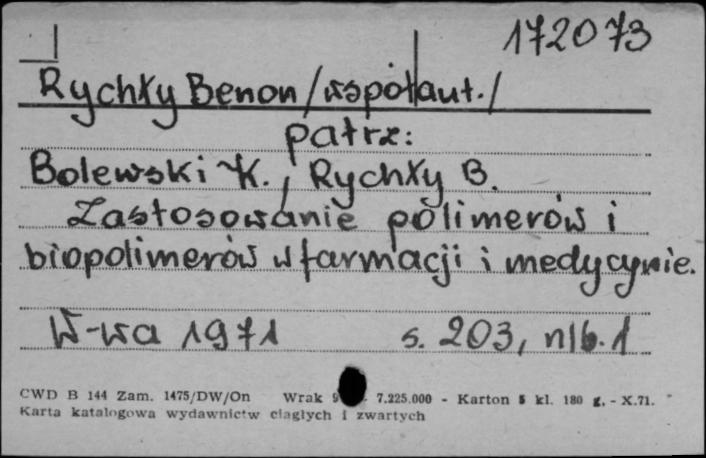 172073
Rychły Benon /współaut./
patrz:
Bolewski K., Rychły B.
Zastosowanie polimerów i
biopolimerów w farmacji i medycynie.
W-wa 1971 s. 203, nlb. 1
CWD B 144 Zam. 1475/DW/On Wrak 7.225.000 - Karton 5 kl. 180 g. - X.71.
Karta katalogowa wydawnictw ciągłych i zwartych